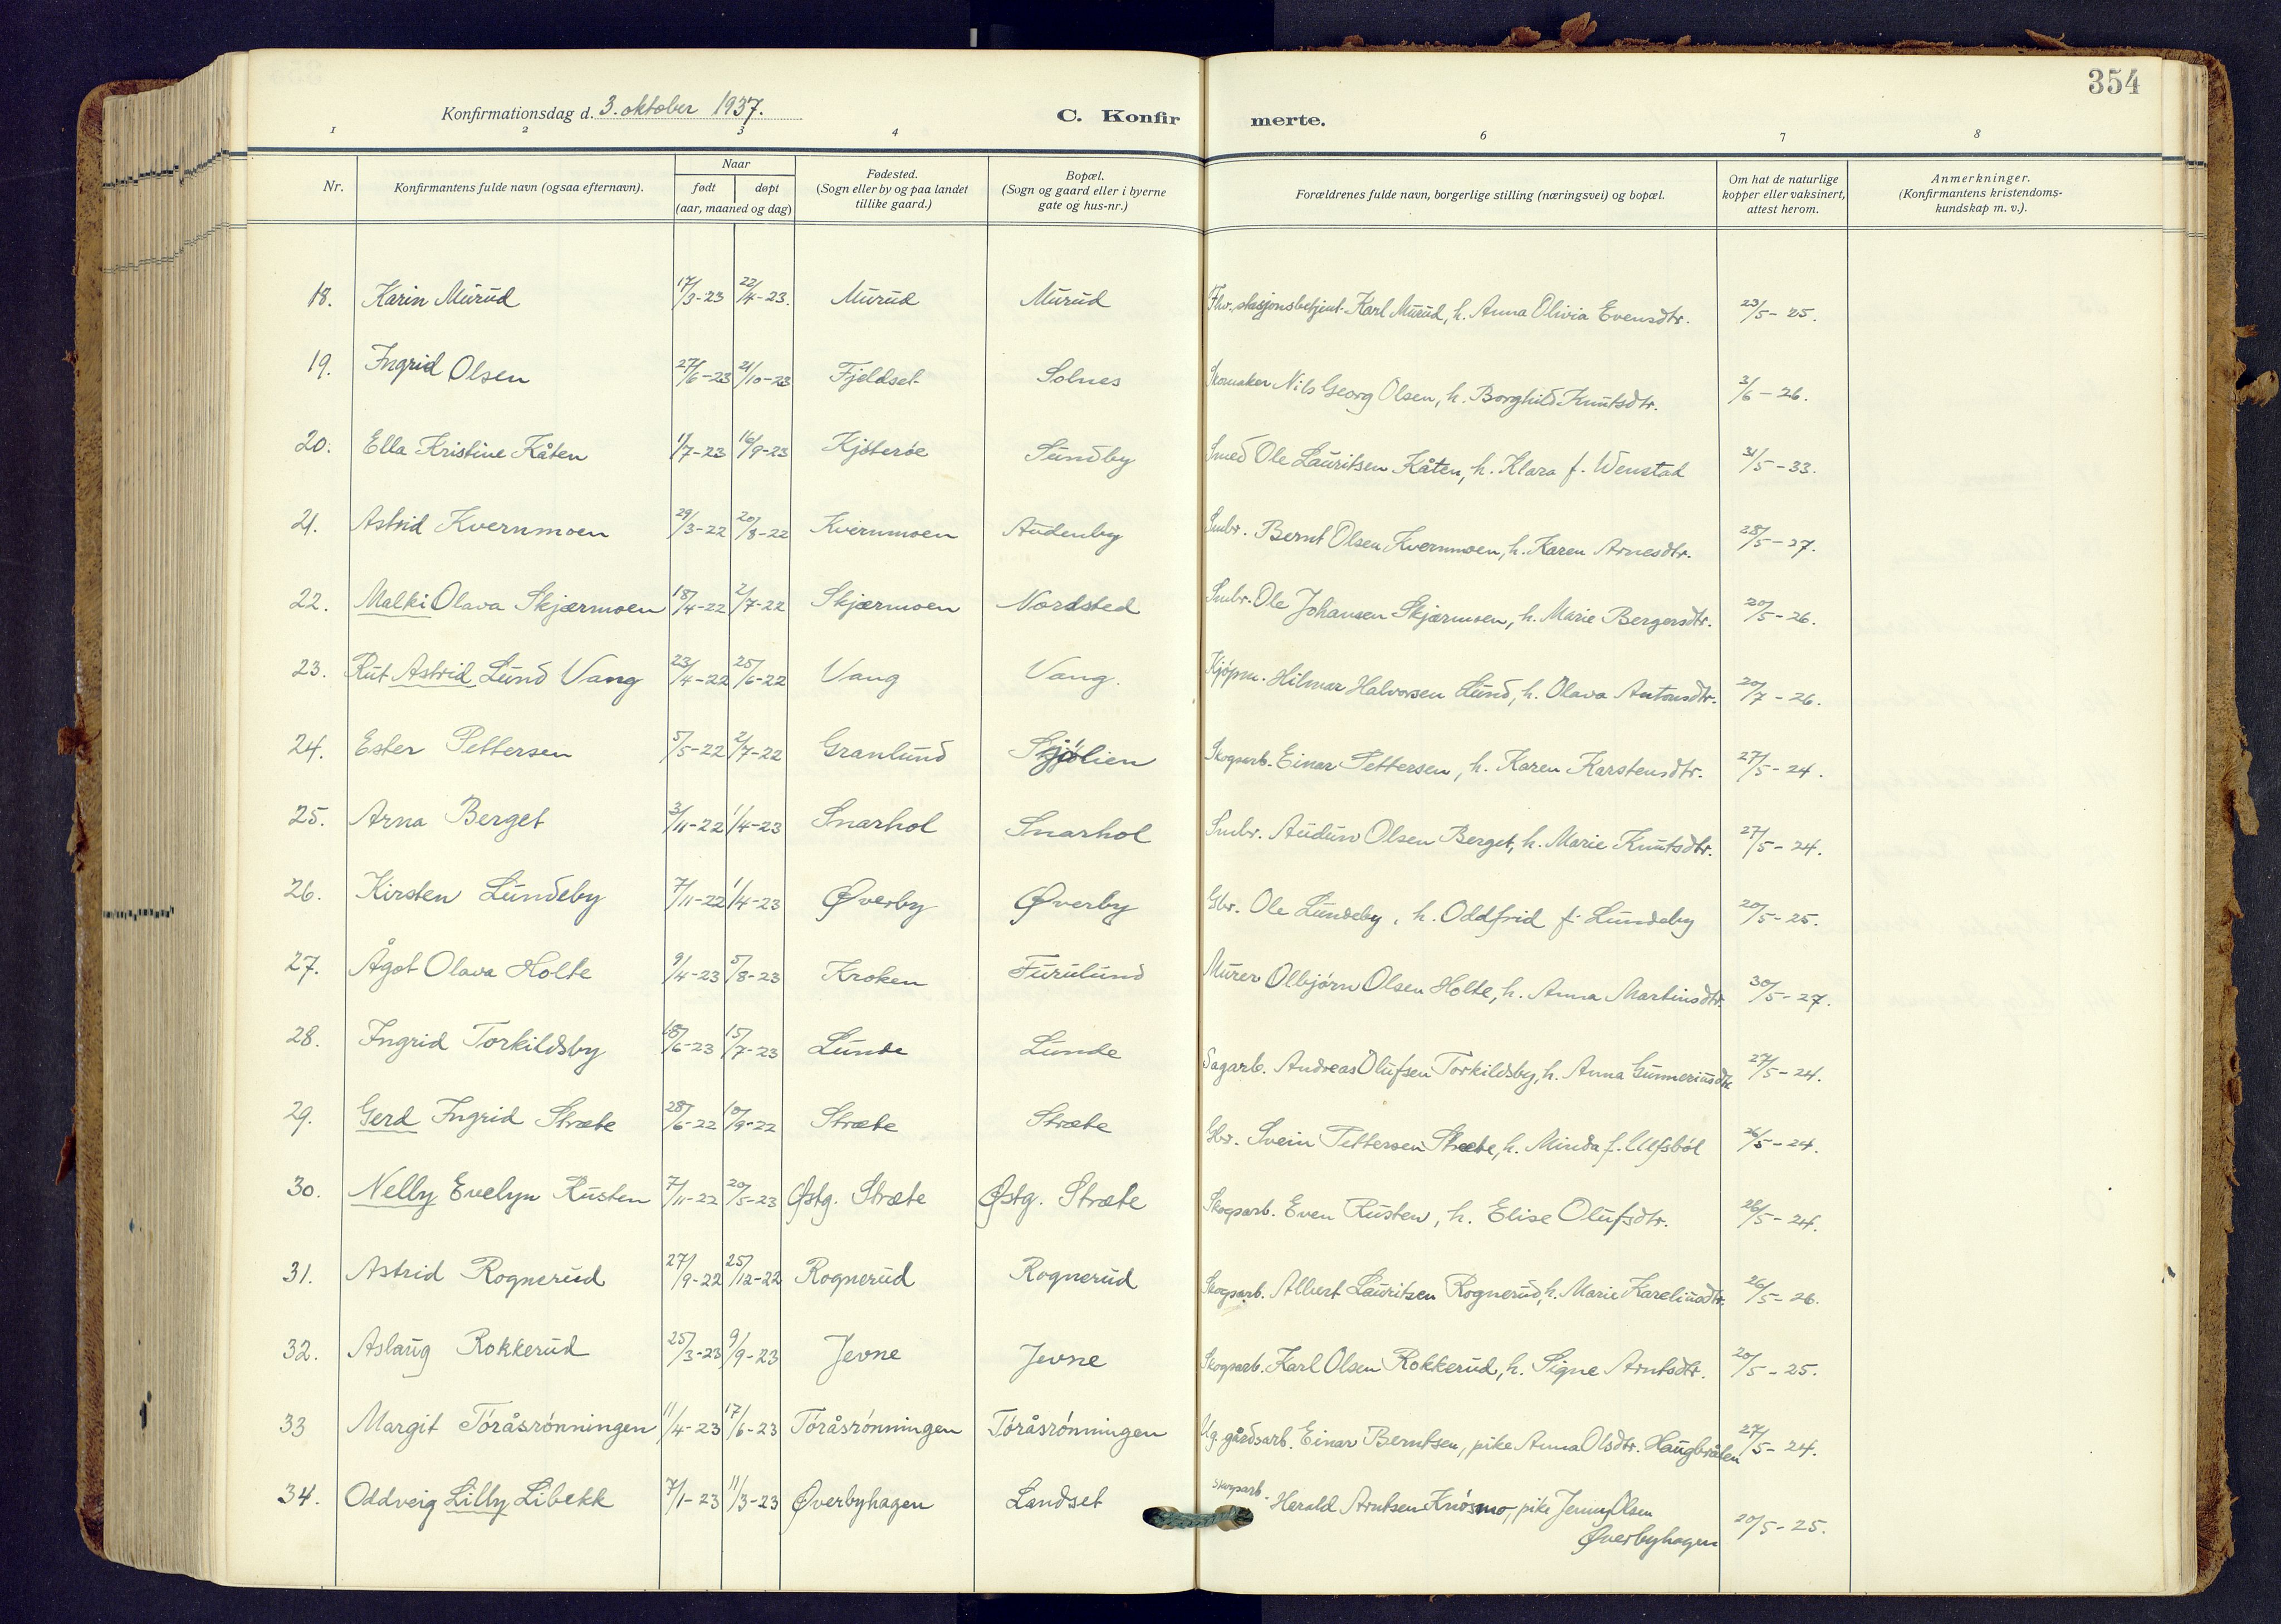 354
Konfirmationsdag d. 3. oktober 1937.
C. Konfir merte.
1 2 3 4 6 7 8
Nr.
Konfirmantens fulde navn (ogsaa efternavn).
Naar
født døpt
(aar, maaned og dag)
Fødested.
(Sogn eller by og paa landet
tillike gaard.)
Bopæl.
(Sogn og gaard eller i byerne
gate og hus-nr.)
Forældrenes fulde navn, borgerlige stilling (næringsvei) og bopæl.
Om hat de naturlige
kopper eller vaksinert,
attest herom.
Anmerkninger.
(Konfirmantens kristendoms-
kundskap m. v.).
18. Karin Murud 17/3-23 22/4-23. Murud Murud Fhv. stasjonsbetjent. Karl Murud, h. Anna Olivia Evensdtr. 23/5-25.
19. Ingrid Olsen 27/6-23 21/10-23 Fjeldset Solnes Skomaker Nils Georg Olsen, h. Borghild Knutsdtr. 3/6-26.
20. Ella Kristine Kåten 17/7-23 16/9-23 Kjøterøe Sundby Smed Ole Lauritsen Kåten, h. Klara f. Wenstad 31/5-33.
21. Astrid Kvernmoen 29/3-22 20/8-22 Kvernmoen Audenby Smbr. Bernt Olsen Kvernmoen, h. Karen Arnesdtr. 28/5-27.
22. Malki Olava Skjærmoen 18/4-22 2/7-22 Skjærmoen Nordsted Smbr. Ole Johansen Skjærmoen, h. Marie Bergersdtr. 20/5-26.
23. Rut Astrid Lund Vang 23/4-22 25/6-22 Vang Vang. Kjøpm. Hilmar Halvorsen Lund, h. Olava Antonsdtr. 20/7-26.
24. Ester Pettersen 5/5-22 2/7-22 Granlund Skjølien Skogsarb. Einar Pettersen, h. Karen Karstensdtr. 27/5-24.
25. Arna Berget 3/11-22 1/4-23 Snarhol Snarhol Smbr. Audun Olsen Berget, h. Marie Knutsdtr. 27/5-24.
26. Kirsten Lundeby 7/11-22 1/4-23 Øverby Øverby Gbr. Ole Lundeby, h. Oddfrid f. Lundeby 20/5-25.
27. Ågot Olava Holte 9/4-23 5/8-23 Kroken Furulund Murer Olbjørn Olsen Holte, h. Anna Martinsdtr. 30/5-27.
28. Ingrid Torkildsby 18/6-23 15/7-23 Lunde Lunde Sagarb. Andreas Olufsen Torkildsby, h. Anna Gunneriusdtr. 27/5-24.
29. Gerd Ingrid Stræte 28/6-22 10/9-22 Stræte Stræte Gbr. Svein Pettersen Stræte, h. Minda f. Ulfsbøl 26/5-24.
30. Nelly Evelyn Rusten 7/11-22 20/5-23 Østg. Stræte Østg. Stræte Skogsarb. Even Rusten, h. Elise Olufsdtr. 26/5-24.
31. Astrid Rognerud 27/9-22 25/12-22 Rognerud Rognerud Skogsarb. Albert Lauritsen Rognerud, h. Marie Kareliusdtr. 26/5-26.
32. Aslaug Rokkerud 25/3-23 9/9-23 Jevne Jevne Skogsarb. Karl Olsen Rokkerud, h. Signe Arntsdtr. 20/5-25.
33 Margit Toråsrønningen 11/4-23 17/6-23 Toråsrønningen Toråsrønningen Ug. gårdsarb. Einar Berntsen, pike Anna Olsdtr. Haugbråten 27/5-24.
34. Oddveig Lilly Libekk 7/1-23 11/3-23 Øverbyhagen Landset Skogsarb. Herald Arntsen Knøsmo, pike Jenny Olsen
Øverbyhagen 20/5-25.